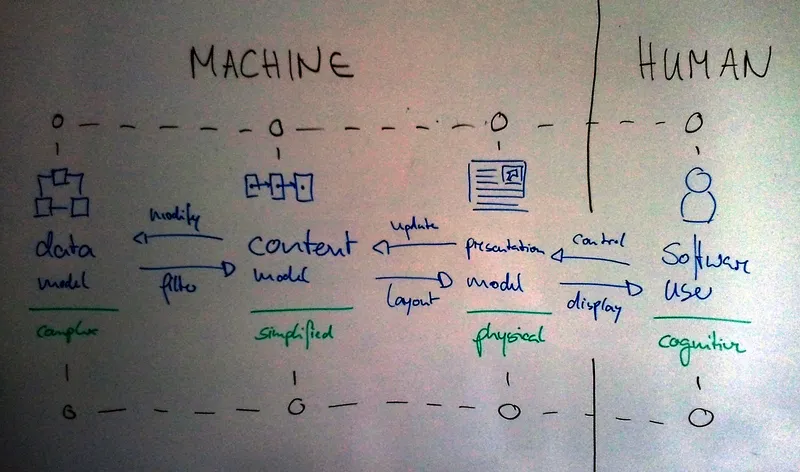 MACHINE
HUMAN
modify
update
control
data
model
content
model
presentation
model
Software
user
filter
layout
display
complex
simplified
physical
cognitive